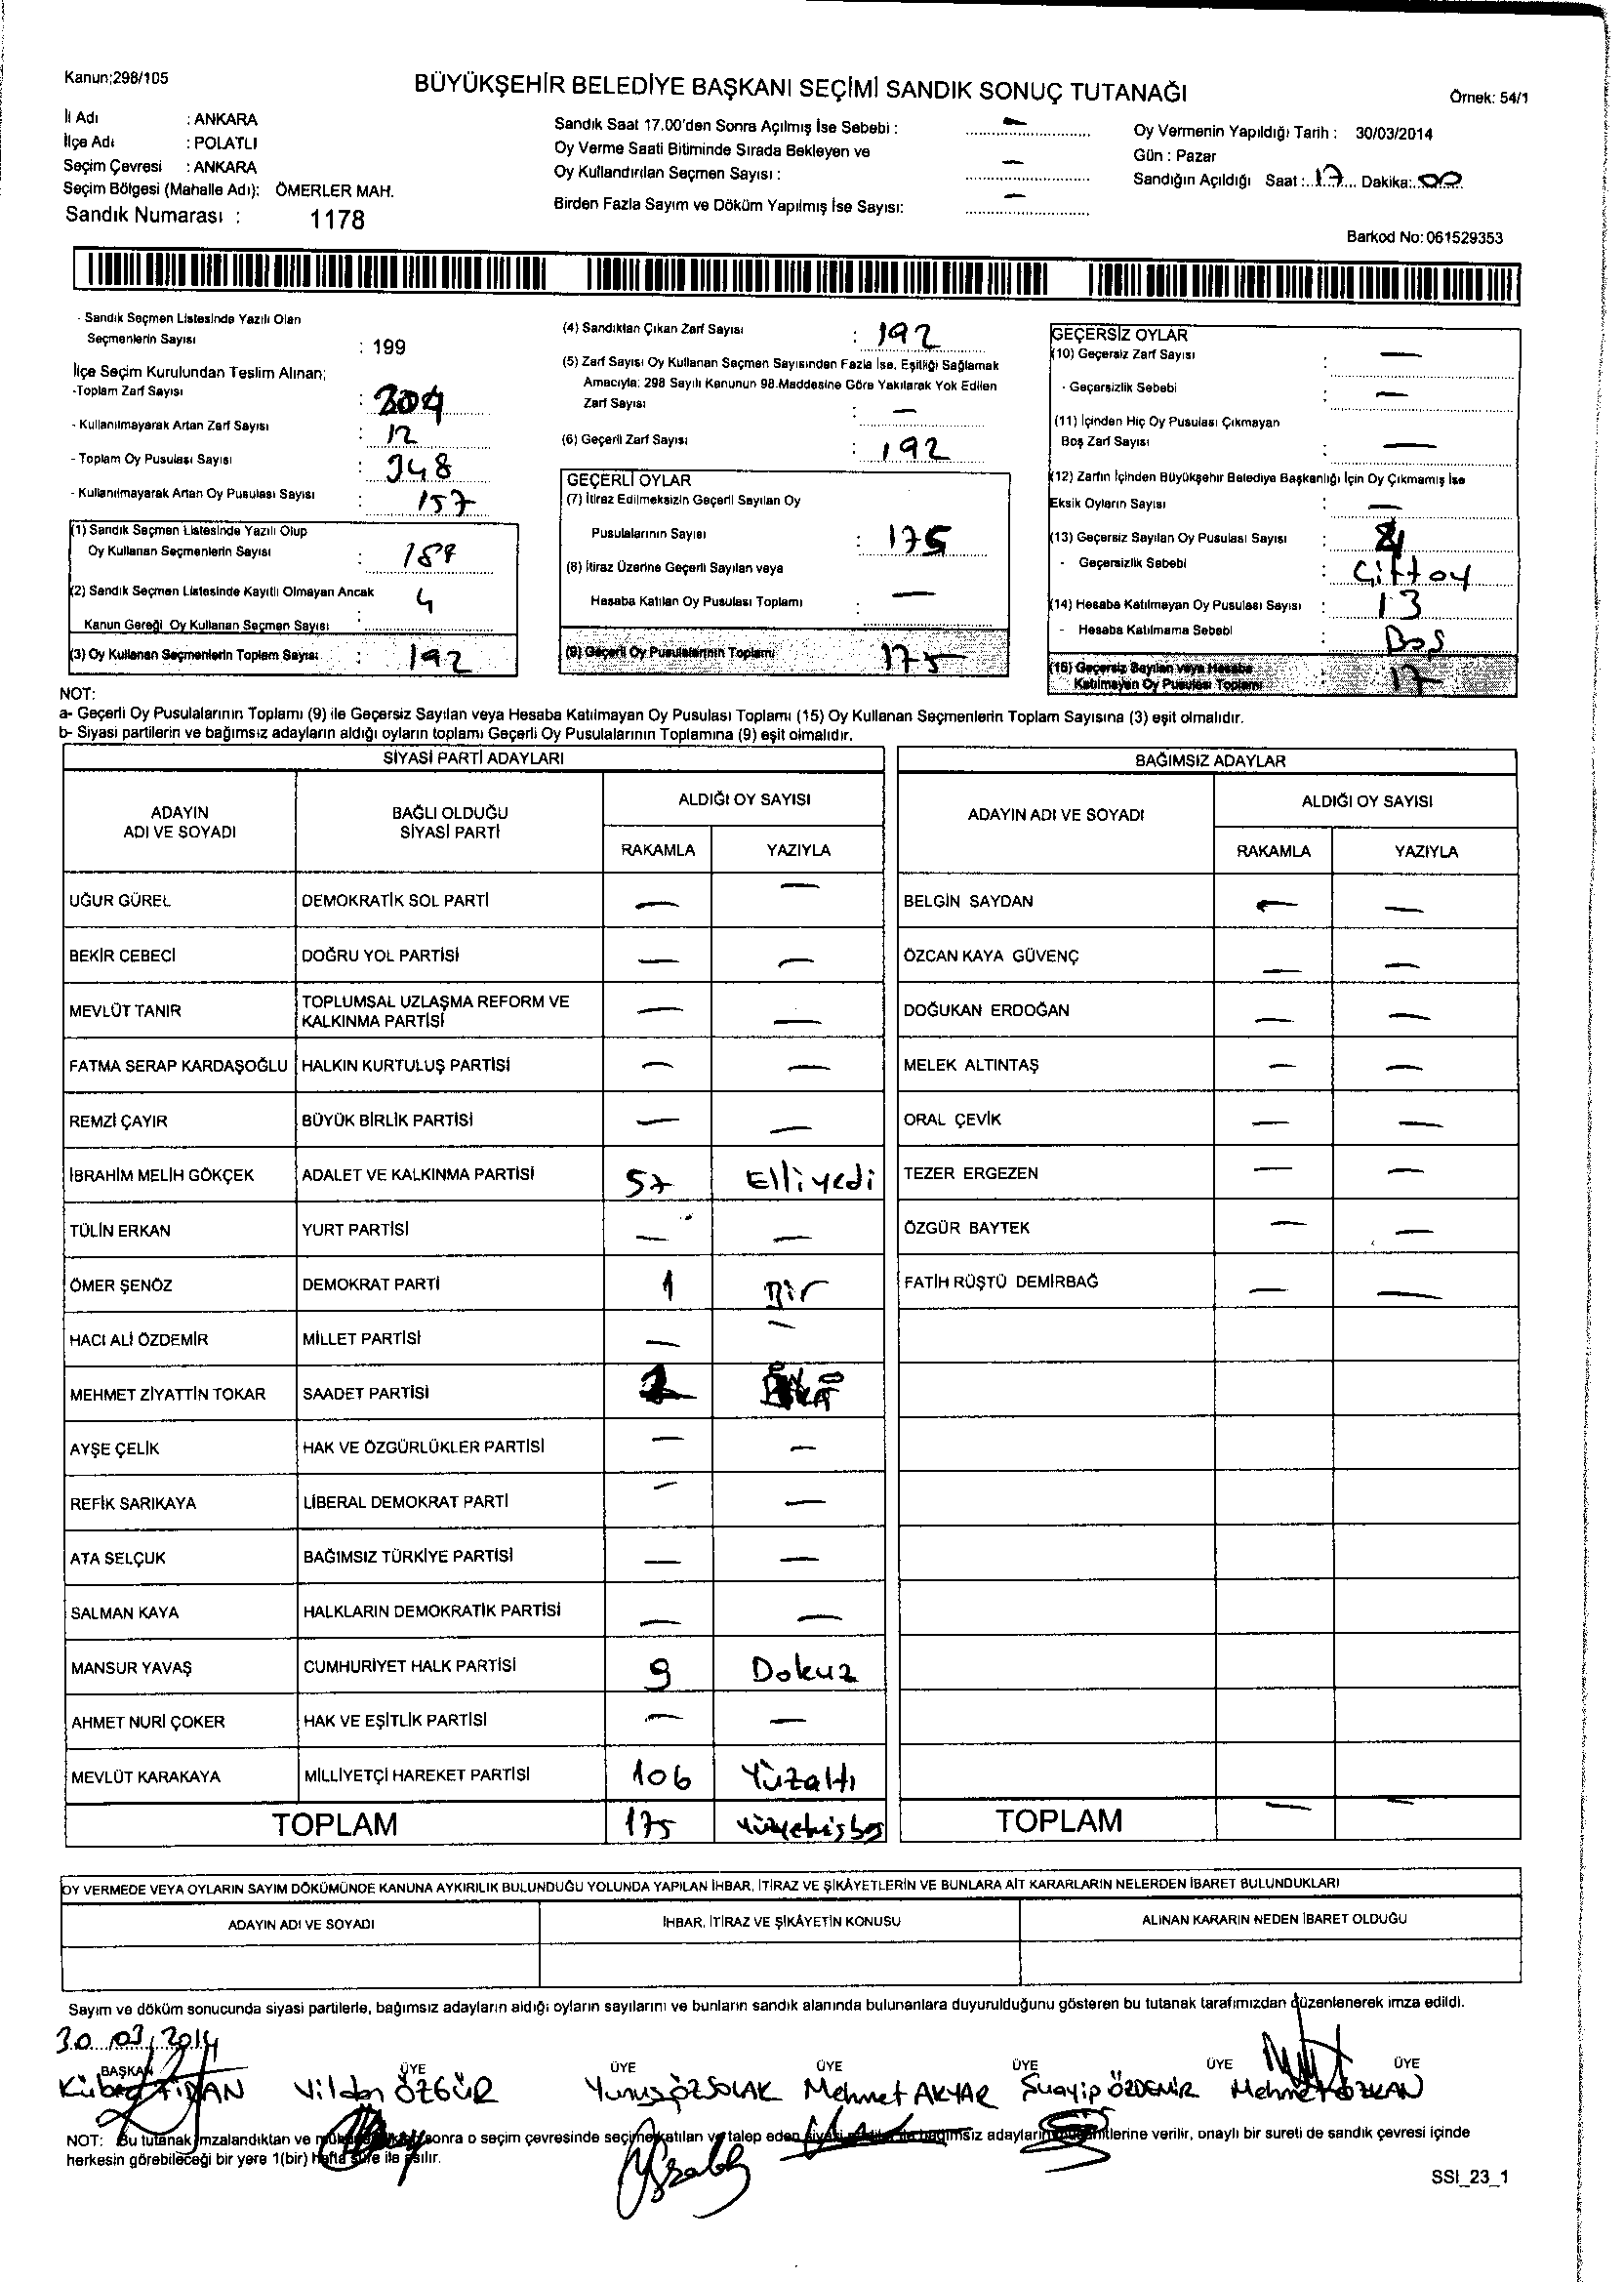 Kanun;298/105
BÜYÜKŞEHİR BELEDİYE BAŞKANI SEÇİMİ SANDIK SONUÇ TUTANAĞI
Örnek: 54/1
İl Adı : ANKARA
İlçe Adı : POLATLI
Seçim Çevresi : ANKARA
Seçim Bölgesi (Mahalle Adı): ÖMERLER MAH.
Sandık Numarası : 1178
Sandık Saat 17.00'den Sonra Açılmış İse Sebebi : —
Oy Verme Saati Bitiminde Sırada Bekleyen ve
Oy Kullandırılan Seçmen Sayısı : —
Birden Fazla Sayım ve Döküm Yapılmış İse Sayısı: —
Oy Vermenin Yapıldığı Tarih : 30/03/2014
Gün : Pazar
Sandığın Açıldığı Saat : 17 Dakika: 00
Barkod No: 061529353
- Sandık Seçmen Listesinde Yazılı Olan
Seçmenlerin Sayısı : 199
İlçe Seçim Kurulundan Teslim Alınan;
-Toplam Zarf Sayısı : 204
- Kullanılmayarak Artan Zarf Sayısı : 12
- Toplam Oy Pusulası Sayısı : 348
- Kullanılmayarak Artan Oy Pusulası Sayısı : 157
(1) Sandık Seçmen Listesinde Yazılı Olup
Oy Kullanan Seçmenlerin Sayısı :
(2) Sandık Seçmen Listesinde Kayıtlı Olmayan Ancak
Kanun Gereği Oy Kullanan Seçmen Sayısı : 4
(3) Oy Kullanan Seçmenlerin Toplam Sayısı : 192
(4) Sandıktan Çıkan Zarf Sayısı : 192
(5) Zarf Sayısı Oy Kullanan Seçmen Sayısından Fazla İse, Eşitliği Sağlamak
Amacıyla; 298 Sayılı Kanunun 98.Maddesine Göre Yakılarak Yok Edilen
Zarf Sayısı : —
(6) Geçerli Zarf Sayısı : 192
GEÇERLİ OYLAR
(7) İtiraz Edilmeksizin Geçerli Sayılan Oy
Pusulalarının Sayısı : 175
(8) İtiraz Üzerine Geçerli Sayılan veya
Hesaba Katılan Oy Pusulası Toplamı : —
(9) Geçerli Oy Pusulalarının Toplamı 175
GEÇERSİZ OYLAR
(10) Geçersiz Zarf Sayısı : —
- Geçersizlik Sebebi : —
(11) İçinden Hiç Oy Pusulası Çıkmayan
Boş Zarf Sayısı : —
(12) Zarfın İçinden Büyükşehir Belediye Başkanlığı İçin Oy Çıkmamış İse
Eksik Oyların Sayısı : —
(13) Geçersiz Sayılan Oy Pusulası Sayısı : 4
- Geçersizlik Sebebi : Çift oy
(14) Hesaba Katılmayan Oy Pusulası Sayısı : 13
- Hesaba Katılmama Sebebi : Boş
(15) Geçersiz Sayılan veya Hesaba
Katılmayan Oy Pusulası Toplamı : 17
NOT:
a- Geçerli Oy Pusulalarının Toplamı (9) ile Geçersiz Sayılan veya Hesaba Katılmayan Oy Pusulası Toplamı (15) Oy Kullanan Seçmenlerin Toplam Sayısına (3) eşit olmalıdır.
b- Siyasi partilerin ve bağımsız adayların aldığı oyların toplamı Geçerli Oy Pusulalarının Toplamına (9) eşit olmalıdır.
SİYASİ PARTİ ADAYLARI
ADAYIN ADI VE SOYADI BAĞLI OLDUĞU SİYASİ PARTİ ALDIĞI OY SAYISI
RAKAMLA YAZIYLA
UĞUR GÜREL DEMOKRATİK SOL PARTİ — —
BEKİR CEBECİ DOĞRU YOL PARTİSİ — —
MEVLÜT TANIR TOPLUMSAL UZLAŞMA REFORM VE KALKINMA PARTİSİ — —
FATMA SERAP KARDAŞOĞLU HALKIN KURTULUŞ PARTİSİ — —
REMZİ ÇAYIR BÜYÜK BİRLİK PARTİSİ — —
İBRAHİM MELİH GÖKÇEK ADALET VE KALKINMA PARTİSİ 57 Elliyedi
TÜLİN ERKAN YURT PARTİSİ — —
ÖMER ŞENÖZ DEMOKRAT PARTİ 1 Bir
HACI ALİ ÖZDEMİR MİLLET PARTİSİ — —
MEHMET ZİYATTİN TOKAR SAADET PARTİSİ 2
AYŞE ÇELİK HAK VE ÖZGÜRLÜKLER PARTİSİ — —
REFİK SARIKAYA LİBERAL DEMOKRAT PARTİ — —
ATA SELÇUK BAĞIMSIZ TÜRKİYE PARTİSİ — —
SALMAN KAYA HALKLARIN DEMOKRATİK PARTİSİ — —
MANSUR YAVAŞ CUMHURİYET HALK PARTİSİ 9 Dokuz
AHMET NURİ ÇOKER HAK VE EŞİTLİK PARTİSİ — —
MEVLÜT KARAKAYA MİLLİYETÇİ HAREKET PARTİSİ 106 Yüzaltı
TOPLAM 175 yüzyetmişbeş
BAĞIMSIZ ADAYLAR
ADAYIN ADI VE SOYADI ALDIĞI OY SAYISI
RAKAMLA YAZIYLA
BELGİN SAYDAN — —
ÖZCAN KAYA GÜVENÇ — —
DOĞUKAN ERDOĞAN — —
MELEK ALTINTAŞ — —
ORAL ÇEVİK — —
TEZER ERGEZEN — —
ÖZGÜR BAYTEK — —
FATİH RÜŞTÜ DEMİRBAĞ — —
TOPLAM — —
OY VERMEDE VEYA OYLARIN SAYIM DÖKÜMÜNDE KANUNA AYKIRILIK BULUNDUĞU YOLUNDA YAPILAN İHBAR, İTİRAZ VE ŞİKÂYETLERİN VE BUNLARA AİT KARARLARIN NELERDEN İBARET BULUNDUKLARI
ADAYIN ADI VE SOYADI İHBAR, İTİRAZ VE ŞİKÂYETİN KONUSU ALINAN KARARIN NEDEN İBARET OLDUĞU
Sayım ve döküm sonucunda siyasi partilerle, bağımsız adayların aldığı oyların sayılarını ve bunların sandık alanında bulunanlara duyurulduğunu gösteren bu tutanak tarafımızdan düzenlenerek imza edildi.
30.03.2014
BAŞKAN ÜYE ÜYE ÜYE ÜYE ÜYE ÜYE
Kübra FİDAN Vildan ÖZGÜR Yunus ÖZSOLAK Mehmet AKYAR Şuayip ÖZDEMİR Mehmet ÖZKAN
NOT: Bu tutanak imzalandıktan ve sonra o seçim çevresinde seçime katılan ve talep eden siyasi bağımsız adayların verilir, onaylı bir sureti de sandık çevresi içinde
herkesin görebileceği bir yere 1(bir) hafta süre ile asılır.
SSI_23_1